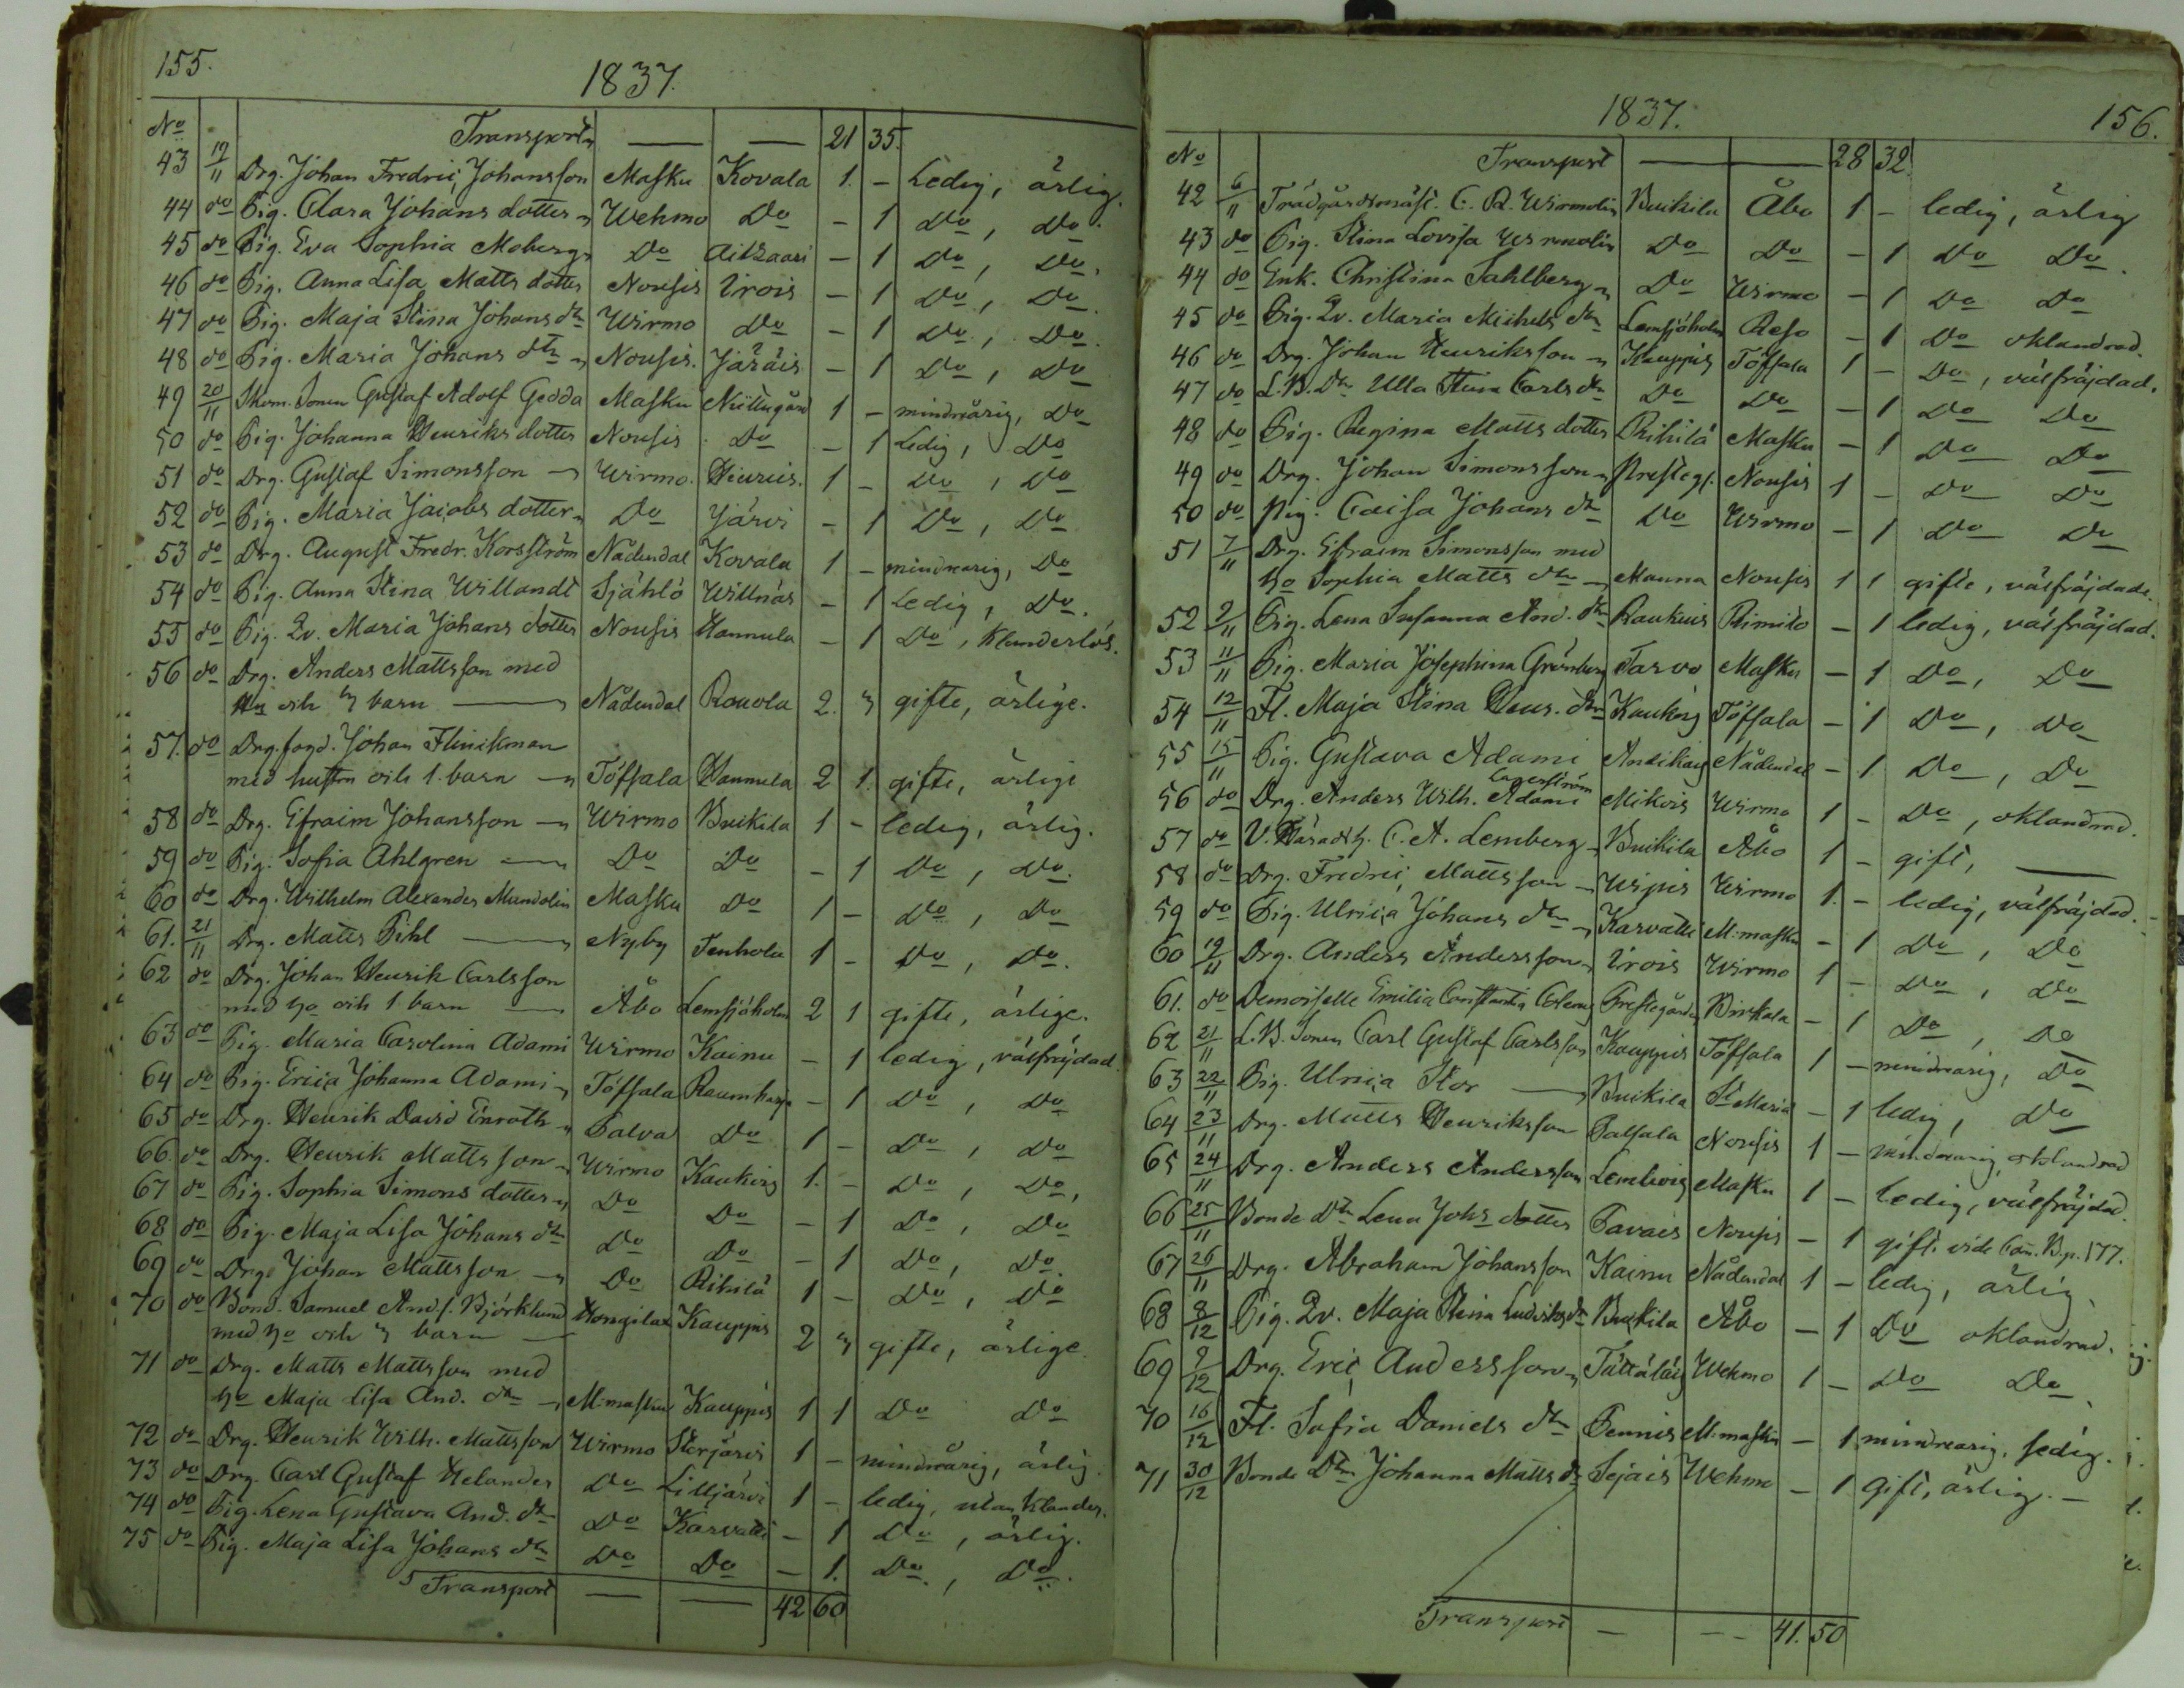 155.
1837.
No Transport — — 21 35.
43 19/11 Drg. Johan Fredric Johansson Masku Kovala 1. – Ledig, ärlig.
44 do Pig. Clara Johans dotter Wehmo Do – 1 Do, Do.
45 do Pig. Eva Sophia Moberg Do Aitsaari – 1 Do, Do.
46 do Pig. Anna Lisa Matts dotter Nousis Irois – 1 Do, Do.
47 do Pig. Maja Stina Johans dtr Wirmo Do – 1 Do, Do.
48 do Pig. Maria Johans dtr Nousis. Järäis – 1 Do, Do
49 20/11 Skom. Sonen Gustaf Adolf Gedda Masku Nüttugård 1 – mindreårig, Do
50 do Pig. Johanna Henriks dotter Nousis Do – 1 Ledig, Do
51 do Drg. Gustaf Simonsson Wirmo. 1 – Do, Do
52 do Pig. Maria Jacobs dotter Do Järvi – 1 Do, Do
53 do Drg. August Fredr. Korsström Nådendal Kovala 1 – mindrearig, Do
54 do Pig. Anna Stina Willandt Sjählö Willnäs – 1 Ledig, Do.
55 do Pig. Qv. Maria Johans dotter Nousis Hannula – 1 Do, Klanderlös.
56 do Drg. Anders Mattsson med
Hu och 3 barn — Nådendal Rouola 2. 3 gifte, ärlige.
57. do Drg. fogd. Johan Flinikman
med hustru och 1. barn Töfsala Hannula 2 1. gifte, ärlige
58 do Drg. Efraim Johansson Wirmo Buikila 1 – ledig, ärlig.
59 do Pig. Sofia Ahlgren — Do Do – 1 Do, Do.
60 do Drg. Wilhelm Alexander Mandolin Masku Do 1 – Do, Do
61. 21/11 Drg. Matts Pihl — Nyby Tenhola 1 – Do, Do.
62 do Drg. Johan Henrik Carlsson
med Ho och 1 barn — Åbo Lemsjöholm 2 1 gifte, ärlige.
63 do Pig. Maria Carolina Adami Wirmo Kainu – 1 ledig, välfräjdad.
64 do Pig. Erica Johanna Adami Töfsala Raumharju – 1 Do, Do
65 do Drg. Henrik David Enroth Palva Do 1 – Do, Do
66. do Drg. Henrik Mattsson Wirmo Kaukois 1. – Do, Do,
67 do Pig. Sophia Simons dotter Do Do – 1 Do, Do
68 do Pig. Maja Lisa Johans dtr Do Do – 1 Do, Do.
69 do Drg. Johan Mattsson Do Rihilä 1 – Do, Do
70 do Bond. Samuel And.s. Björklund Hongilax Kauppis
med Ho och 3 barn — 2 3 gifte, ärlige.
71 do Drg. Matts Mattsson med
Ho Maja Lisa And. dtr M:masku Kauppis 1 1 Do Do
72 do Drg. Henrik Wilh. Mattsson Wirmo Storjärvi 1 – mindreårig, ärlig.
73 do Drg. Carl Gustaf Helander Do Lilljärvi 1 – ledig, utan klander.
74 do Pig. Lena Gustava And. dtr Do Karvatti – 1 Do, ärlig.
75 do Pig. Maja Lisa Johans dtr Do Do – 1. Do., Do.
Transport — — 42 60
1837.
156.
No Transport — — 28 32.
42 6/11 Trädgårdsmäst. C. R. Wirmolin Buikila Åbo 1 – ledig, ärlig
43 do Pig. Stina Lovisa Wirmolin Do Do – 1 Do Do.
44 do Enk. Christina Sahlberg Do Wirmo – 1 Do Do
45 do Pig. Qv. Maria Michels dtr Lemsjöholm Reso – 1 Do oklandrad.
46 do Drg. Johan Henriksson Kauppis Töfsala 1 – Do, välfräjdad.
47 do L.B. Dtr Ulla Stina Carls dtr Do Do – 1 Do Do
48 do Pig. Regina Matts dotter Rihilä Masku – 1 Do Do
49 do Drg. Johan Simonsson Presteg. Nousis 1 – Do Do
50 do Pig. Caisa Johans dtr Do Wirmo – 1 Do Do
51 7/11 Drg. Efraim Simonsson med
Ho Sophia Matts dtr Manna Nousis 1 1 gifte, välfräjdade.
52 9/11 Pig. Lena Susanna And. dtr Raukuis Rimito – 1 ledig, välfräjdad.
53 11/11 Pig. Maria Josephina Grönberg Tarvo Masku – 1 Do, Do
54 12/11 Fl. Maja Stina Henr. dtr Kaukois Töffala – 1 Do, Do
55 15/11 Pig. Gustava Adami Antikais Nådendal – 1 Do, Do
Lagerström
56 do Drg. Anders Wilh. Adami Mikois Wirmo 1 – Do, oklandrad.
57 do V. Häradsh. C. A. Lemberg Buikila Åbo 1 – gift, —
58 do Drg. Fredric Mattsson Wipis Wirmo 1. – ledig, välfräjdad.
59 do Pig. Ulrica Johans dtr Karvatti M:masku – 1 Do, Do
60 19/11 Drg. Anders Andersson Irois Wirmo 1 – Do, Do
61. do Demoiselle Emilia Constantia Prestegården Birkala – 1 Do, Do
62 21/11 L.B. Sonen Carl Gustaf Carlsson Kauppis Töffala 1 – mindreårig, Do
63 22/11 Pig. Ulrica Stor — Buikila St Maria – 1 ledig, Do
64 23/11 Drg. Matts Henriksson Palsala Nousis 1 – mindreårig, oklandrad
65 24/11 Drg. Anders Andersson Lemlois Masku 1 – ledig, välfräjdad.
66 25/11 Bonde Dtr Lena Johs dotter Pavais Nousis – 1 gift. vide Com. B. p. 177.
67 26/11 Drg. Abraham Johansson Kainu Nådendal 1 – ledig, ärlig.
68 8/12 Pig. Qv. Maja Stina Ludviks dr Buikila Åbo – 1 Do oklandrad.
69 9/12 Drg. Eric Andersson Tättälä Wehmo 1 – Do Do
70 16/12 Fl. Sofia Daniels dtr Pennis M:masku – 1 mindrearig, sedig.
71 30/12 Bonde Dtr Johanna Matts dr Sejais Wehmo – 1 gift, ärlig. –
Transport — — 41. 50